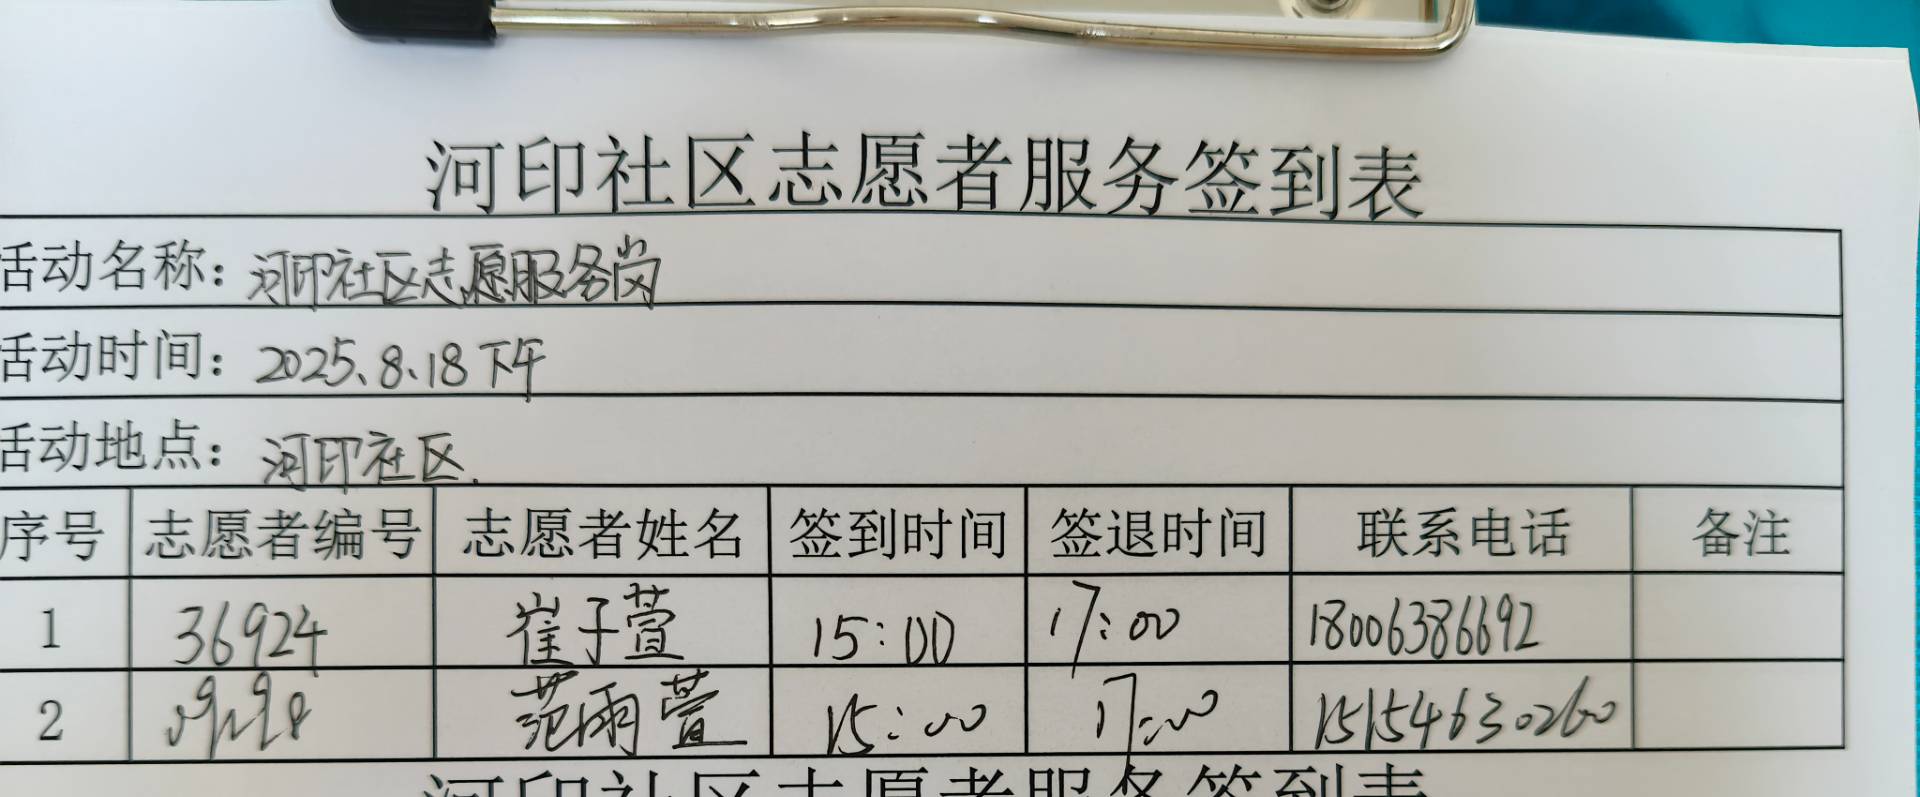 河印社区志愿者服务签到表
活动名称：河印社区志愿服务岗
活动时间：2025、8、18下午
活动地点：河印社区.
序号 志愿者编号 志愿者姓名 签到时间 签退时间 联系电话 备注
1 36924 崔子萱 15:00 17:00 18006386692
2 范雨萱 15:00 17:00 15154630260
河印社区志愿者服务签到表